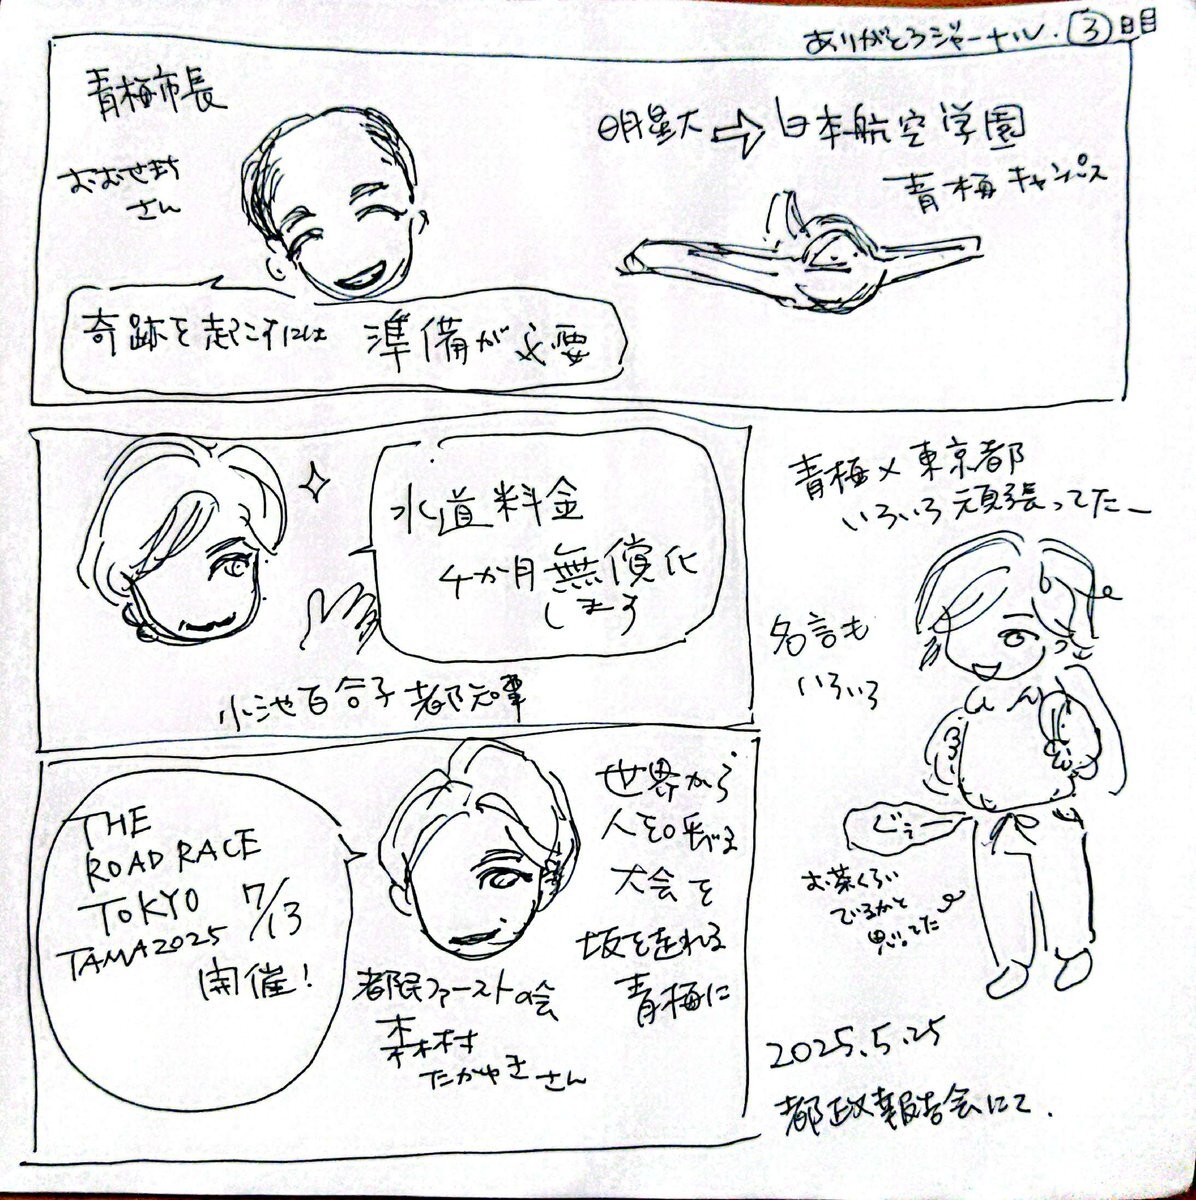 ありがとうジャーナル. ③日目
青梅市長
おおせまち
さん
奇跡を起こすには 準備が必要
明星大⇨日本航空学園
青梅キャンパス
水道料金
4か月無償化
します
小池百合子都知事
青梅×東京都
いろいろ頑張ってたー
名言も
いろいろ
ぐぅ
お茶くらい
でるかと
思ってた
THE
ROAD RACE
TOKYO
TAMA2025
7/13
開催!
都民ファーストの会
森村
たかゆきさん
世界から
人を呼べる
大会を
坂を走れる
青梅に
2025.5.25
都政報告会にて.